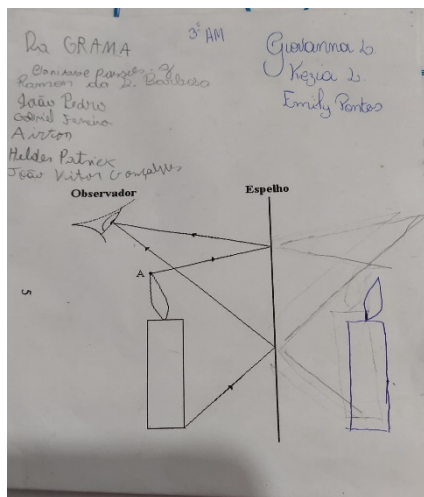 3º AM
Da GRAMA
Ramon da S. Barbosa
João Pedro
Gabriel Ferreira
Airton
Helder Patrick
João Vitor Gonçalves
Giovanna L.
Kezia L.
Emily Pontes
Observador
Espelho
A
5